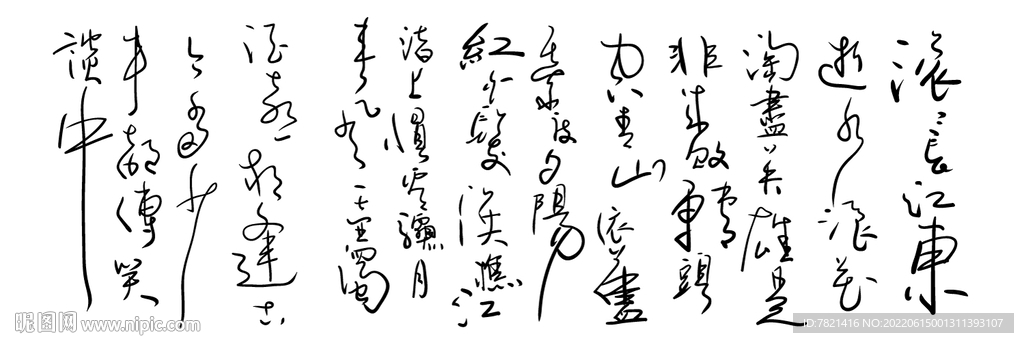 滚〻長江東
逝水浪花
淘盡英雄是
非成敗轉頭
空青山依舊
在幾度夕陽
紅白髮漁樵江
渚上慣看秋月
春風一壺濁
酒喜相逢古
今多少
事都付笑
談中
昵图网 www.nipic.com
ID:7821416 NO:20220615001311393107